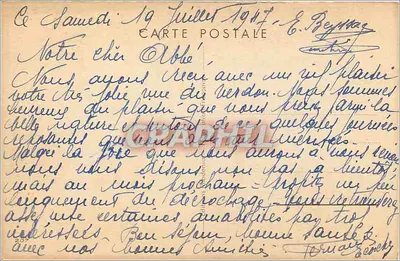 Ce Samedi 19 Juillet 1947. E. Beyssac
CARTE POSTALE
Notre cher Abbé
Nous avons reçu avec un vif plaisir
votre très jolie vue du Verdon. Nous sommes
heureux du plaisir que vous prenez parmi la
belle nature et surtout de ce quelques journées
reposantes que vous
Malgré la joie que nous aurons à vous revoir
nous vous disons non pas à bientôt,
mais au mois prochain. Profitez un peu
longuement du décrochage. Vous retrouverez
assez vite certaines amabilités par trop
intéressées. Bon séjour, bonne santé
avec nos bonnes amitiés